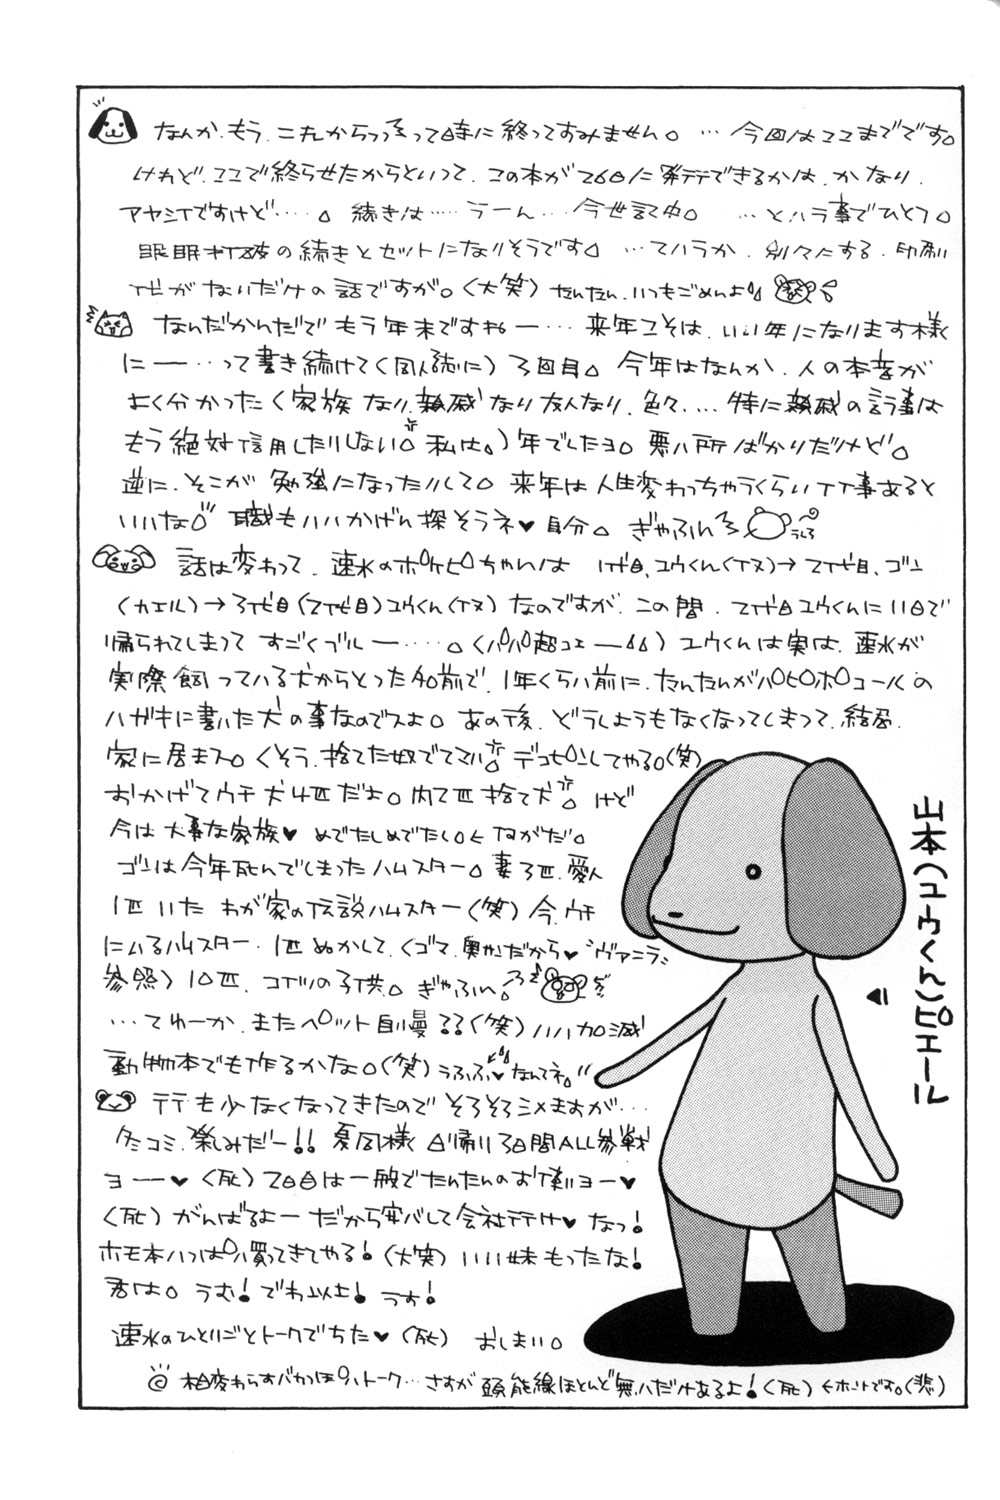 なんか、もう、これからっつうって時に終ってすみません。… 今回はここまでです。
けれど、ここで終らせたからといって、この本が26日に発行できるかは、かなり、
アヤシイですけど……。続きは……うーん…今世記中。…とハラ事でひとつ。
眠眠打破の続きとセットになりそうです。…てハうか、別々にする、印刷
代がないだけの話ですが。(大笑) たんたん、いつもごめんよ
なんだかんだで もう年末ですねー… 来年こそは、いい年になります様
に——…って書き続けて(同人誌に) 3回目。今年はなんか、人の本音が
よく分かった(家族なり、親戚なり友人なり、色々…特に親戚の言う事は
もう絶対信用したりしない。私は。)年でしたヨ。悪い所ばかりだけど。
逆に、そこが勉強になったりして。来年は人生変わっちゃうくらいイイ事あると
いいな。職もいいかげん探そうネ♥自分。ぎゃふん
話は変わって、速水のポケピちゃんは 1代目、ユウくん(イヌ)→2代目、ゴン
(カエル)→3代目(2代目)ユウくん(イヌ)なのですが、この間、2代目ユウくんに11日で
帰られてしまって すごくブルー……。(パパ超コエー) ユウくんは実は、速水が
実際飼っている犬からとった名前で、1年くらい前に、たんたんがパピポコールの
ハガキに書いた犬の事なのでスよ。あの後、どうしようもなくなってしまって、結局、
家に居まス。くそう、捨てた奴でてこい。デコピンしてやる。(笑)
おかげでウチ犬4匹だよ。内2匹捨て犬。けど
今は大事な家族♥ めでたしめでたし。←ながだ。
ゴンは今年死んでしまったハムスター。妻3匹、愛人
1匹いた わが家の伝説ハムスター(笑) 今、ウチ
にいるハムスター、1匹ぬかして、(ゴマ、奥がだから♥ヴァニラ
参照) 10匹、コイツの子供。ぎゃふん。
…てゆーか、またペット自慢??(笑) いい加減
動物本でも作るかな。(笑) うふふ♥なんてネ。
行も少なくなってきたので そろそろシメますが…
冬コミ、楽しみだー!! 夏同様 日帰り3日間ALL参戦
ヨー♥ (死) 2日目は一般でたんたんのお使いヨー♥
(死) がんばるよー だから安心して会社行け♥ なっ!
ホモ本いっぱい買ってきてやる!(大笑) いい妹もったな!
君は。うむ! でわ以上! うす!
速水のひとりごとトークでちた♥ (死) おしまい。
◎ 相変わらずバカっぽいトーク… さすが 頭能線ほとんど無いだけあるよ!(死) ←ホントです。(悲)
山本(ユウくん)ピエール